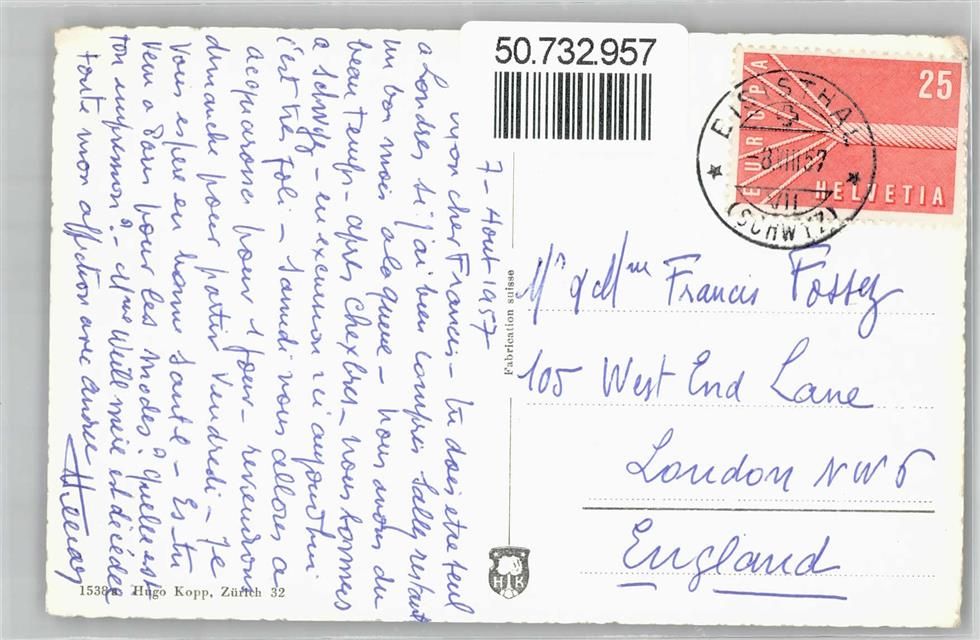 50.732.957
25
EUROPA
HELVETIA
-8.VIII.57
VII
(SCHWYZ)
7 - Aout 1957
Mon cher Francis - tu dois etre seul
a Londres si j'ai bien compris Sally restant
un bon mois a la queue - nous avons du
beau temps - apres Chexbres - nous sommes
a Schwyz - en excursion ici aujourd'hui
c'est très joli - Samedi nous allons a
pour 1 jour - reviendrons
dimanche pour partir Vendredi - Je
Vous espere en bonne santé - Es-tu
Venu a Paris pour les modes? quelle est
ton impression? - Mme Weill mère est décédée
toute mon affection avec André
Mr & Mme Francis Fossey
105 West End Lane
London NW6
England
Fabrication suisse
H K
1538a Hugo Kopp, Zürich 32